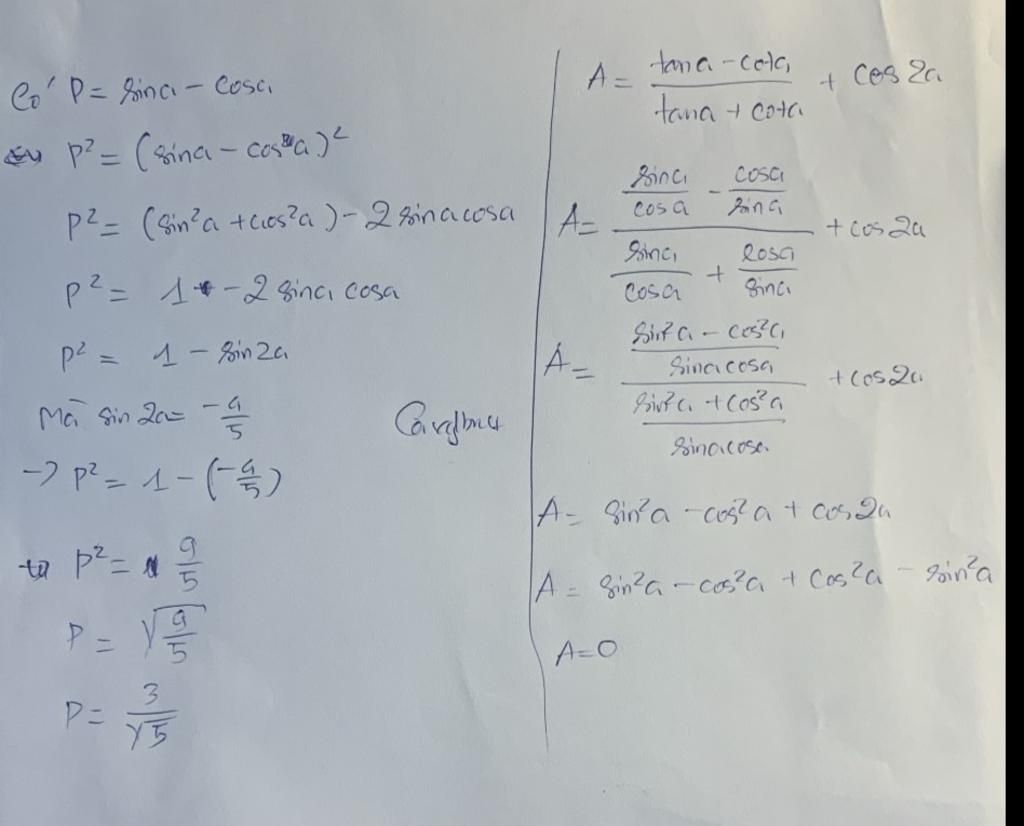 Có P = sina - cosa
P² = (sina - cos a)²
P² = (sin²a + cos²a) - 2 sinacosa
P² = 1 - 2 sina cosa
P² = 1 - sin2a
Mà sin 2a = -4/5
-> P² = 1 - (-4/5)
P² = 9/5
P = √(9/5)
P = 3/√5
A = (tana - cota)/(tana + cota) + cos 2a
A = (sina/cosa - cosa/sina)/(sina/cosa + cosa/sina) + cos 2a
A = ((sin²a - cos²a)/(sinacosa))/((sin²a + cos²a)/(sinacosa)) + cos2a
A = sin²a - cos²a + cos2a
A = sin²a - cos²a + cos²a - sin²a
A = 0